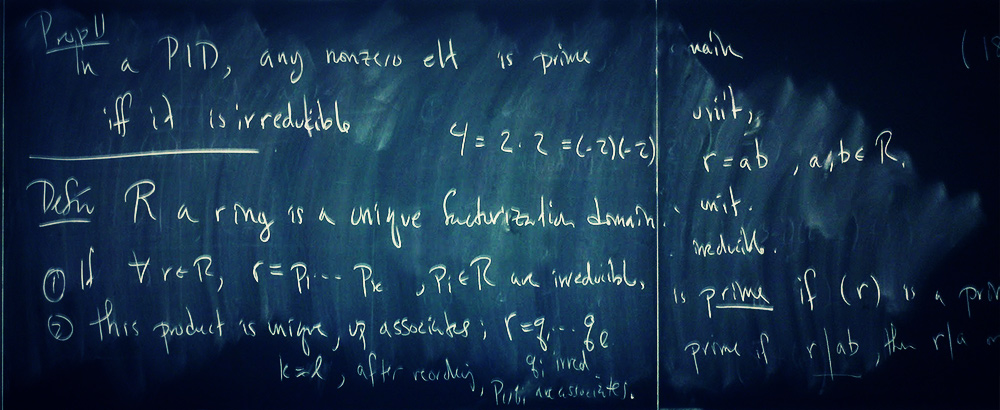 Prop 11
In a PID, any nonzero elt is prime
iff it is irreducible
4 = 2 · 2 = (-2)(-2)
Defn R a ring is a unique factorization domain
① If ∀ r ∈ R, r = p₁ ... pₖ , pᵢ ∈ R are irreducible,
② this product is unique, up associates; r = q₁ ... qₗ
qᵢ irred
k = l, after reordering, pᵢ, qᵢ are associates.
main
unit,
r = ab , a, b ∈ R,
unit.
irreducible.
is prime if (r) is a
prime if r | ab, then r | a